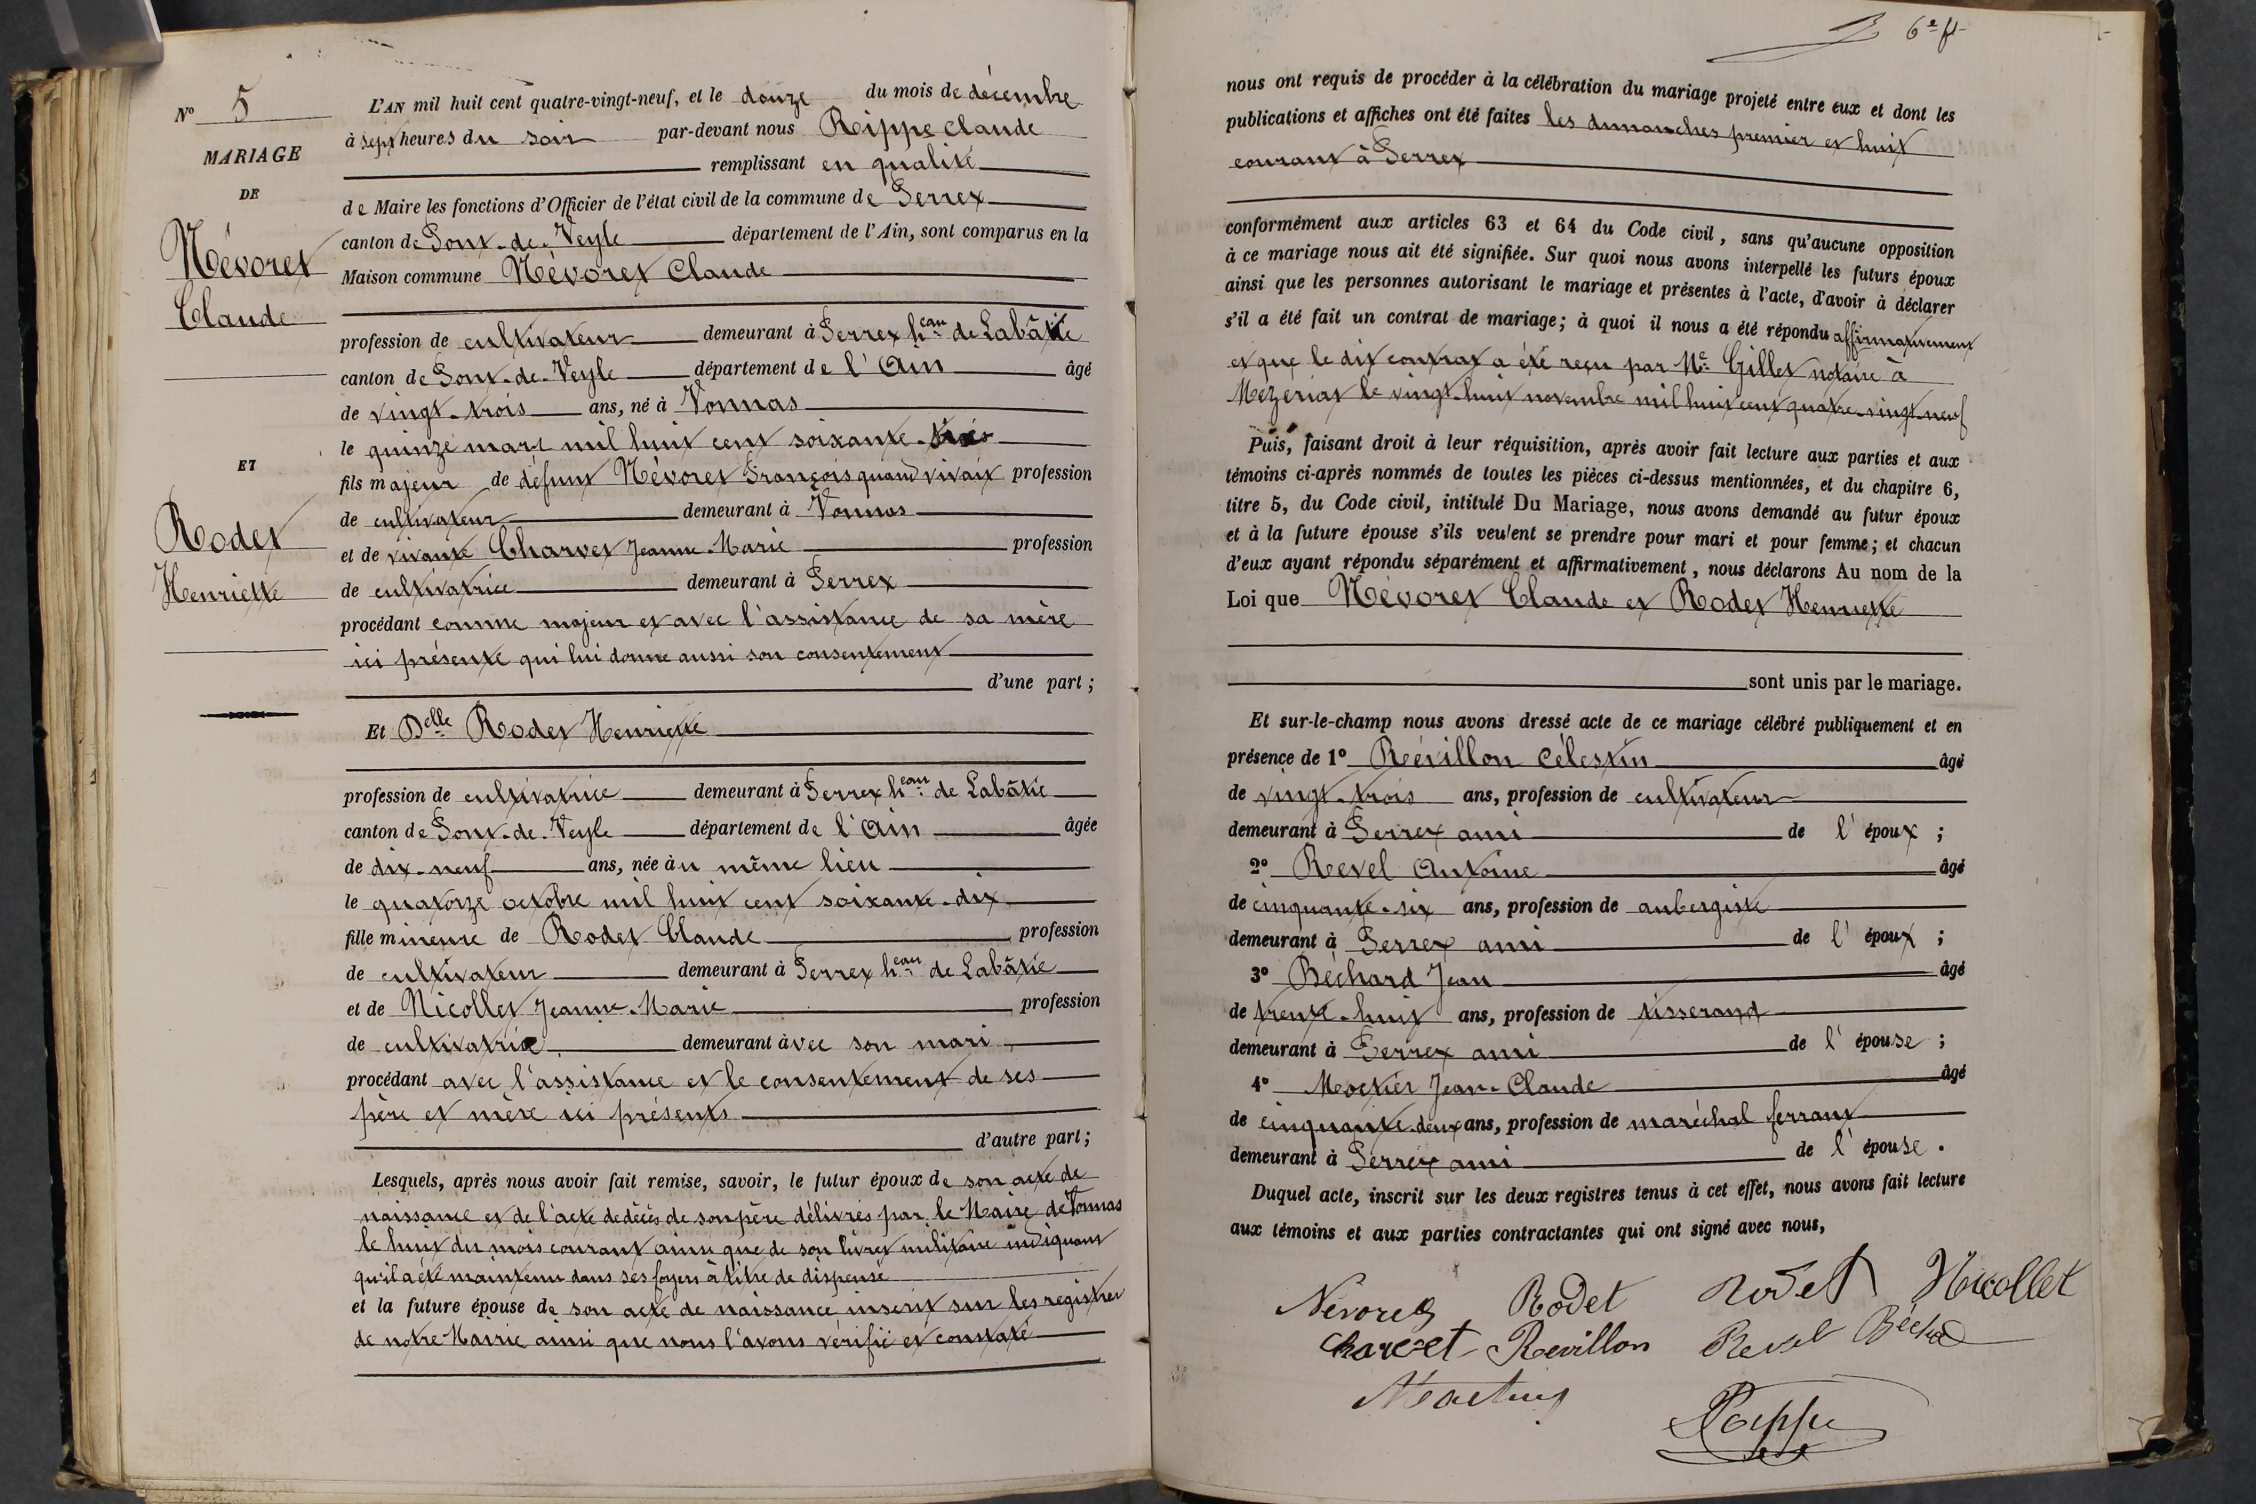 N° 5
MARIAGE
DE
Névoret
Claude
ET
Rodet
Henriette
L'AN mil huit cent quatre-vingt-neuf, et le douze du mois de décembre
à sept heures du soir par-devant nous Rippe Claude
remplissant en qualité
de Maire les fonctions d'Officier de l'état civil de la commune de Perrex
canton de Pont-de-Veyle département de l'Ain, sont comparus en la
Maison commune Névoret Claude
profession de cultivateur demeurant à Perrex heau de Labâtie
canton de Pont-de-Veyle département de l'Ain âgé
de vingt-trois ans, né à Vonnas
le quinze mars mil huit cent soixante-
fils majeur de défunt Névoret François quand vivait profession
de cultivateur demeurant à Vonnas
et de vivante Charvet Jeanne-Marie profession
de cultivatrice demeurant à Perrex
procédant comme majeur et avec l'assistance de sa mère
ici présente qui lui donne aussi son consentement
d'une part;
Et Delle Rodet Henriette
profession de cultivatrice demeurant à Perrex heau de Labâtie
canton de Pont-de-Veyle département de l'Ain âgée
de dix-neuf ans, née àu même lieu
le quatorze octobre mil huit cent soixante-dix
fille mineure de Rodet Claude profession
de cultivateur demeurant à Perrex heau de Labâtie
et de Nicollet Jeanne-Marie profession
de cultivatrice demeurant àvec son mari
procédant avec l'assistance et le consentement de ses
père et mère ici présents
d'autre part;
Lesquels, après nous avoir fait remise, savoir, le futur époux de son acte de
naissance et de l'acte de décès de son père délivrés par le Maire de Vonnas
le huit du mois courant ainsi que de son livret militaire indiquant
qu'il a été maintenu dans ses foyers à titre de dispensé
et la future épouse de son acte de naissance inscrit sur les registres
de notre Mairie ainsi que nous l'avons vérifié et constaté
6e ft
nous ont requis de procéder à la célébration du mariage projeté entre eux et dont les
publications et affiches ont été faites les dimanches premier et huit
courant à Perrex
conformément aux articles 63 et 64 du Code civil, sans qu'aucune opposition
à ce mariage nous ait été signifiée. Sur quoi nous avons interpellé les futurs époux
ainsi que les personnes autorisant le mariage et présentes à l'acte, d'avoir à déclarer
s'il a été fait un contrat de mariage; à quoi il nous a été répondu affirmativement
et que le dit contrat a été reçu par Me Gillet notaire à
Mézériat le vingt-huit novembre mil huit cent quatre-vingt-neuf
Puis, faisant droit à leur réquisition, après avoir fait lecture aux parties et aux
témoins ci-après nommés de toutes les pièces ci-dessus mentionnées, et du chapitre 6,
titre 5, du Code civil, intitulé Du Mariage, nous avons demandé au futur époux
et à la future épouse s'ils veulent se prendre pour mari et pour femme; et chacun
d'eux ayant répondu séparément et affirmativement, nous déclarons Au nom de la
Loi que Névoret Claude et Rodet Henriette
sont unis par le mariage.
Et sur-le-champ nous avons dressé acte de ce mariage célébré publiquement et en
présence de 1° Révillon Célestin âgé
de vingt-trois ans, profession de cultivateur
demeurant à Perrex ami de l'époux;
2° Revel Antoine âgé
de cinquante-six ans, profession de aubergiste
demeurant à Perrex ami de l'époux;
3° Béchard Jean âgé
de trente-huit ans, profession de tisserand
demeurant à Perrex ami de l'épouse;
4° Moctier Jean-Claude âgé
de cinquante-deux ans, profession de maréchal ferrant
demeurant à Perrex ami de l'épouse.
Duquel acte, inscrit sur les deux registres tenus à cet effet, nous avons fait lecture
aux témoins et aux parties contractantes qui ont signé avec nous,
Névoret Rodet Rodet Nicollet
Charvet Revillon Revel Béchad
Rippe